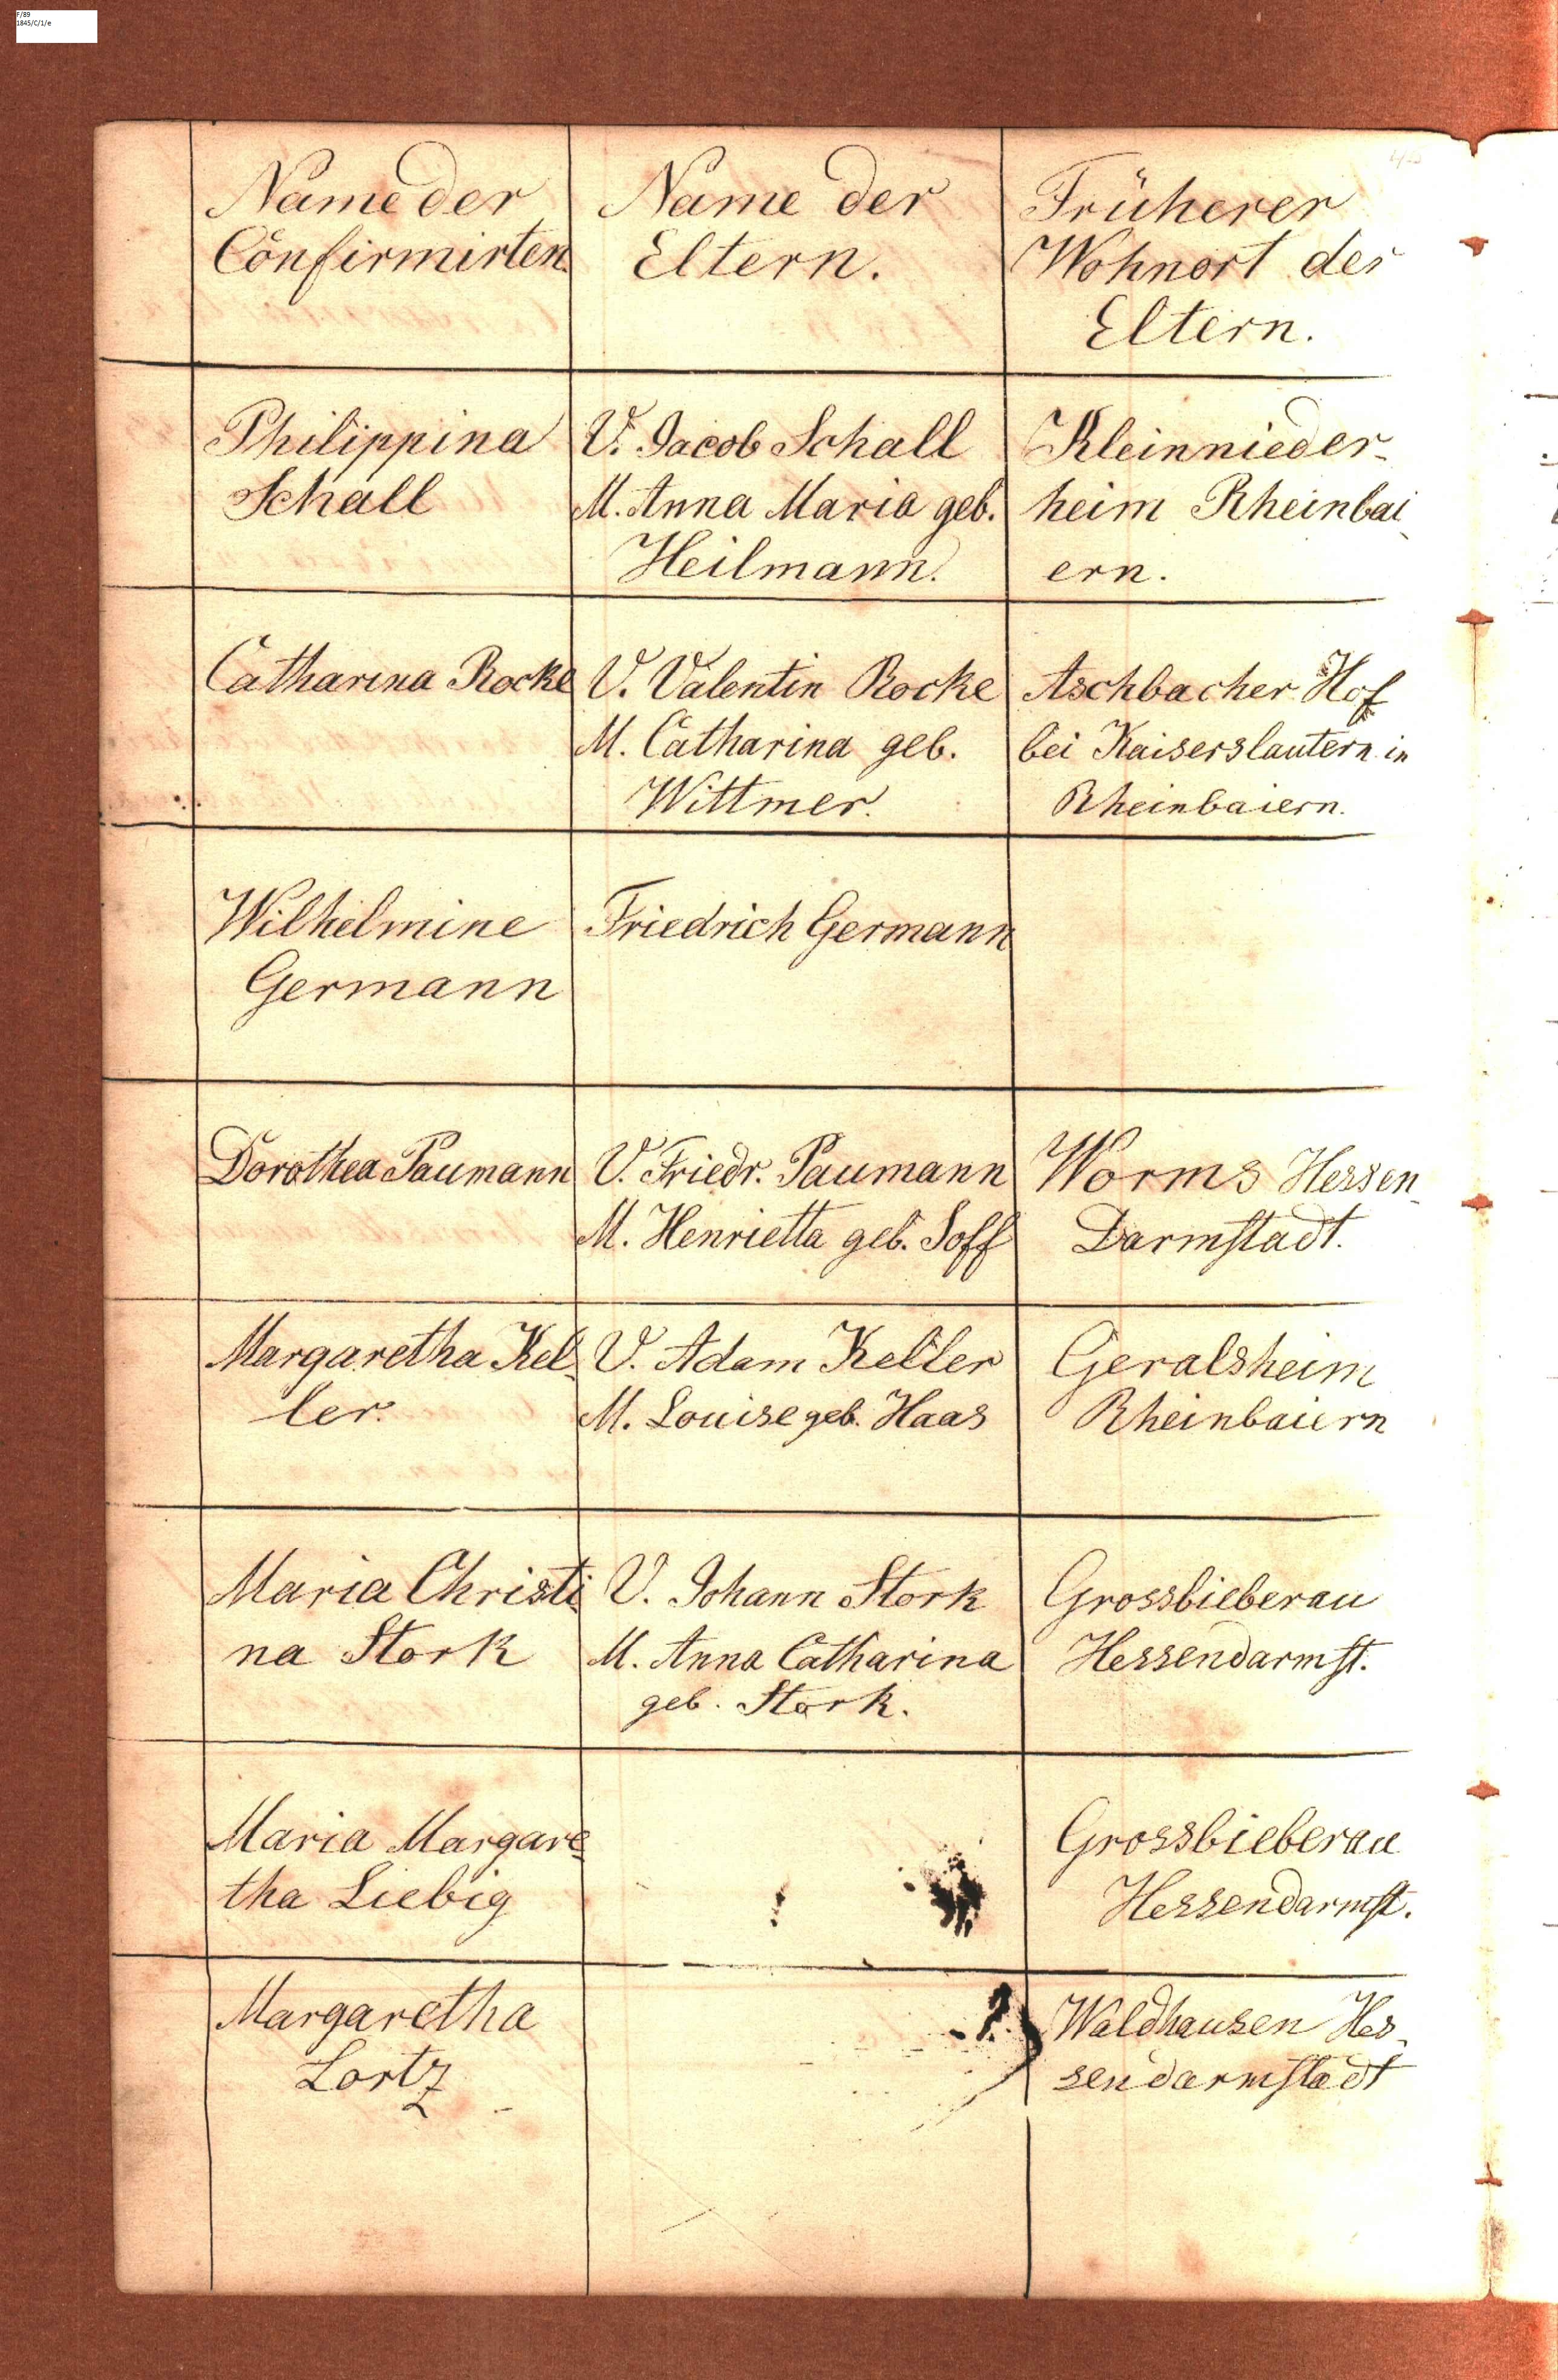 F/89
1845/C/1/e
Name der
Confirmirten.
Name der
Eltern.
Früherer
Wohnort der
Eltern.
Philippina
Schall
V. Jacob Schall
M. Anna Maria geb.
Heilmann.
Kleinnieder-
heim Rheinbai-
ern.
Catharina Rocke
V. Valentin Rocke
M. Catharina geb.
Wittmer.
Aschbacher Hof
bei Kaiserslautern in
Rheinbaiern.
Wilhelmine
Germann
Friedrich Germann
Dorothea Paumann
V. Friedr. Paumann
M. Henrietta geb. Soff
Worms Hessen-
Darmstadt.
Margaretha Kel-
ler.
V. Adam Keller
M. Louise geb. Haas
Geralsheim
Rheinbaiern
Maria Christi-
na Stork
V. Johann Stork
M. Anna Catharina
geb. Stork.
Grossbieberau
Hessendarmst.
Maria Margare-
tha Liebig
Grossbieberau
Hessendarmst.
Margaretha
Lortz
Waldhausen Hes-
sendarmstadt